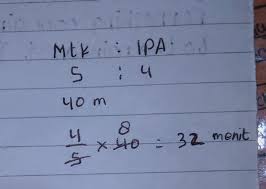 Mtk : IPA
5 : 4
40 m
4/5 x 40 8 = 32 menit